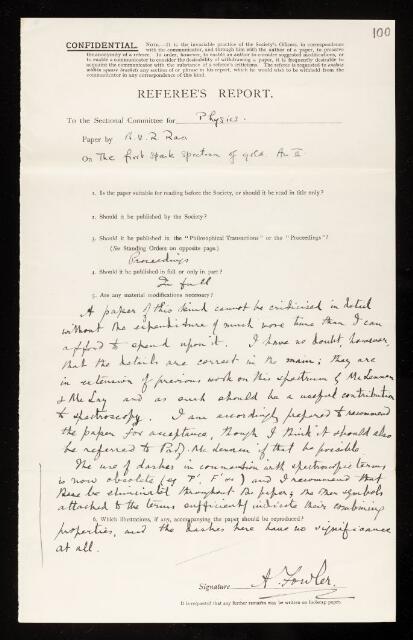 100
CONFIDENTIAL. NOTE.—It is the invariable practice of the Society's Officers, in correspondence
with the communicator, and through him with the author of a paper, to preserve
the anonymity of a referee. In order, however, to enable an author to consider suggested modifications, or
to enable a communicator to consider the desirability of withdrawing a paper, it is frequently desirable to
acquaint the communicator with the substance of a referee's criticisms. The referee is requested to enclose
within square brackets any section of or phrase in his report, which he would wish to be withheld from the
communicator in any correspondence of this kind.
REFEREE'S REPORT.
To the Sectional Committee for Physics.
Paper by B. V. R. Rao
On The first spark spectrum of gold. Au II
1. Is the paper suitable for reading before the Society, or should it be read in title only?
2. Should it be published by the Society?
3. Should it be published in the "Philosophical Transactions" or the "Proceedings"?
(See Standing Orders on opposite page.)
Proceedings
4. Should it be published in full or only in part?
In full
5. Are any material modifications necessary?
A paper of this kind cannot be criticised in detail
without the expenditure of much more time than I can
afford to spend upon it. I have no doubt, however,
that the details are correct in the main; they are
in extension of previous work on this spectrum by McLennan
& McLay and as such should be a useful contribution
to spectroscopy. I am accordingly prepared to recommend
the paper for acceptance, though I think it should also
be referred to Prof. McLennan if that be possible.
The use of dashes in connection with spectroscopic terms
is now obsolete (eg P', F' &c) and I recommend that
these be eliminated throughout the paper; the other symbols
attached to the terms sufficiently indicate their combining
6. Which illustrations, if any, accompanying the paper should be reproduced?
properties, and the dashes here have no significance
at all.
Signature A. Fowler.
It is requested that any further remarks may be written on foolscap paper.